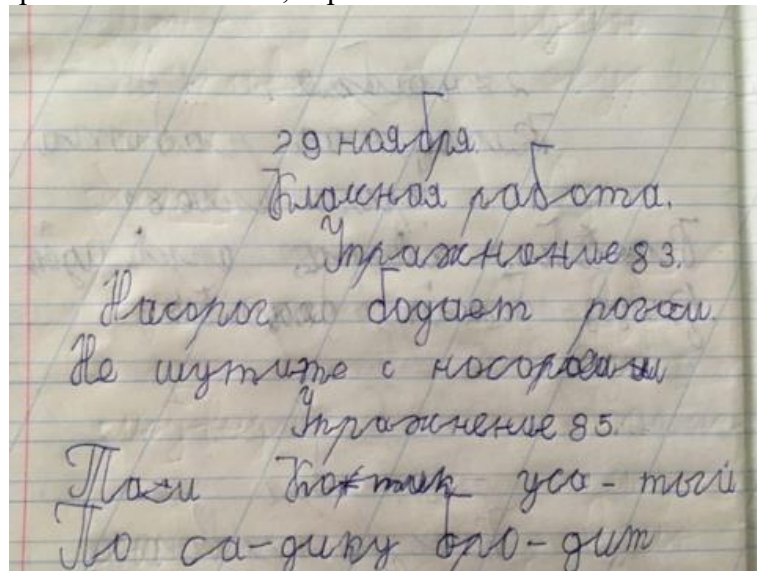 29 ноября.
Классная работа.
Упражноние 83.
Насорог бодает рогом.
Не шутите с носорогами
Упражнение 85.
Котик усо-тый
По са-дику бро-дит